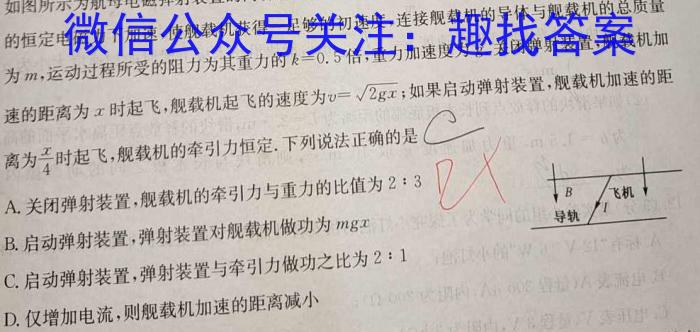 如图所示为航母电磁弹射装置的
微信公众号关注：趣找答案
的恒定电 足够的初速度,连接舰载机的导体与舰载机的总质量
为m,运动过程所受的阻力为其重力的k=0.5倍,重力加速度为g.关闭弹射装置,舰载机加
速的距离为x时起飞,舰载机起飞的速度为v=√2gx;如果启动弹射装置,舰载机加速的距
离为x/4时起飞,舰载机的牵引力恒定.下列说法正确的是
C
A.关闭弹射装置,舰载机的牵引力与重力的比值为2:3
B.启动弹射装置,弹射装置对舰载机做功为mgx
C.启动弹射装置,弹射装置与牵引力做功之比为2:1
D.仅增加电流,则舰载机加速的距离减小
B
飞机
导轨
I